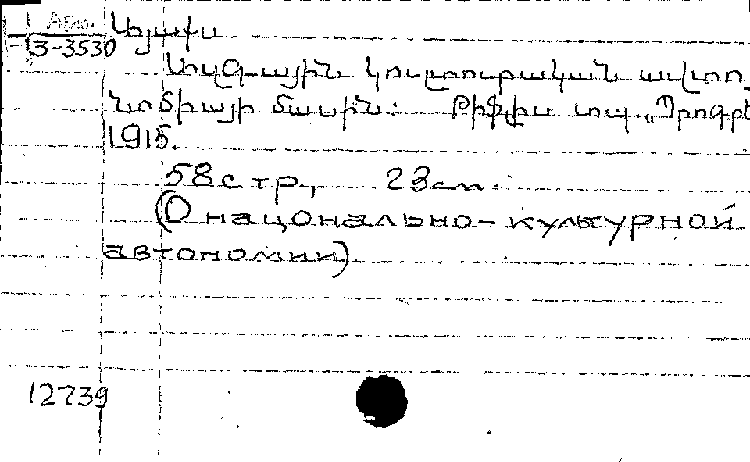 Арм.
3-3530
Այաքս
Ազգային կուլտուրական ավտո
նոմիայի մասին: Թիֆլիս տպ. „Պրոգրե
1915.
58стр, 23см.
(О национально-культурной
автономии)
12739